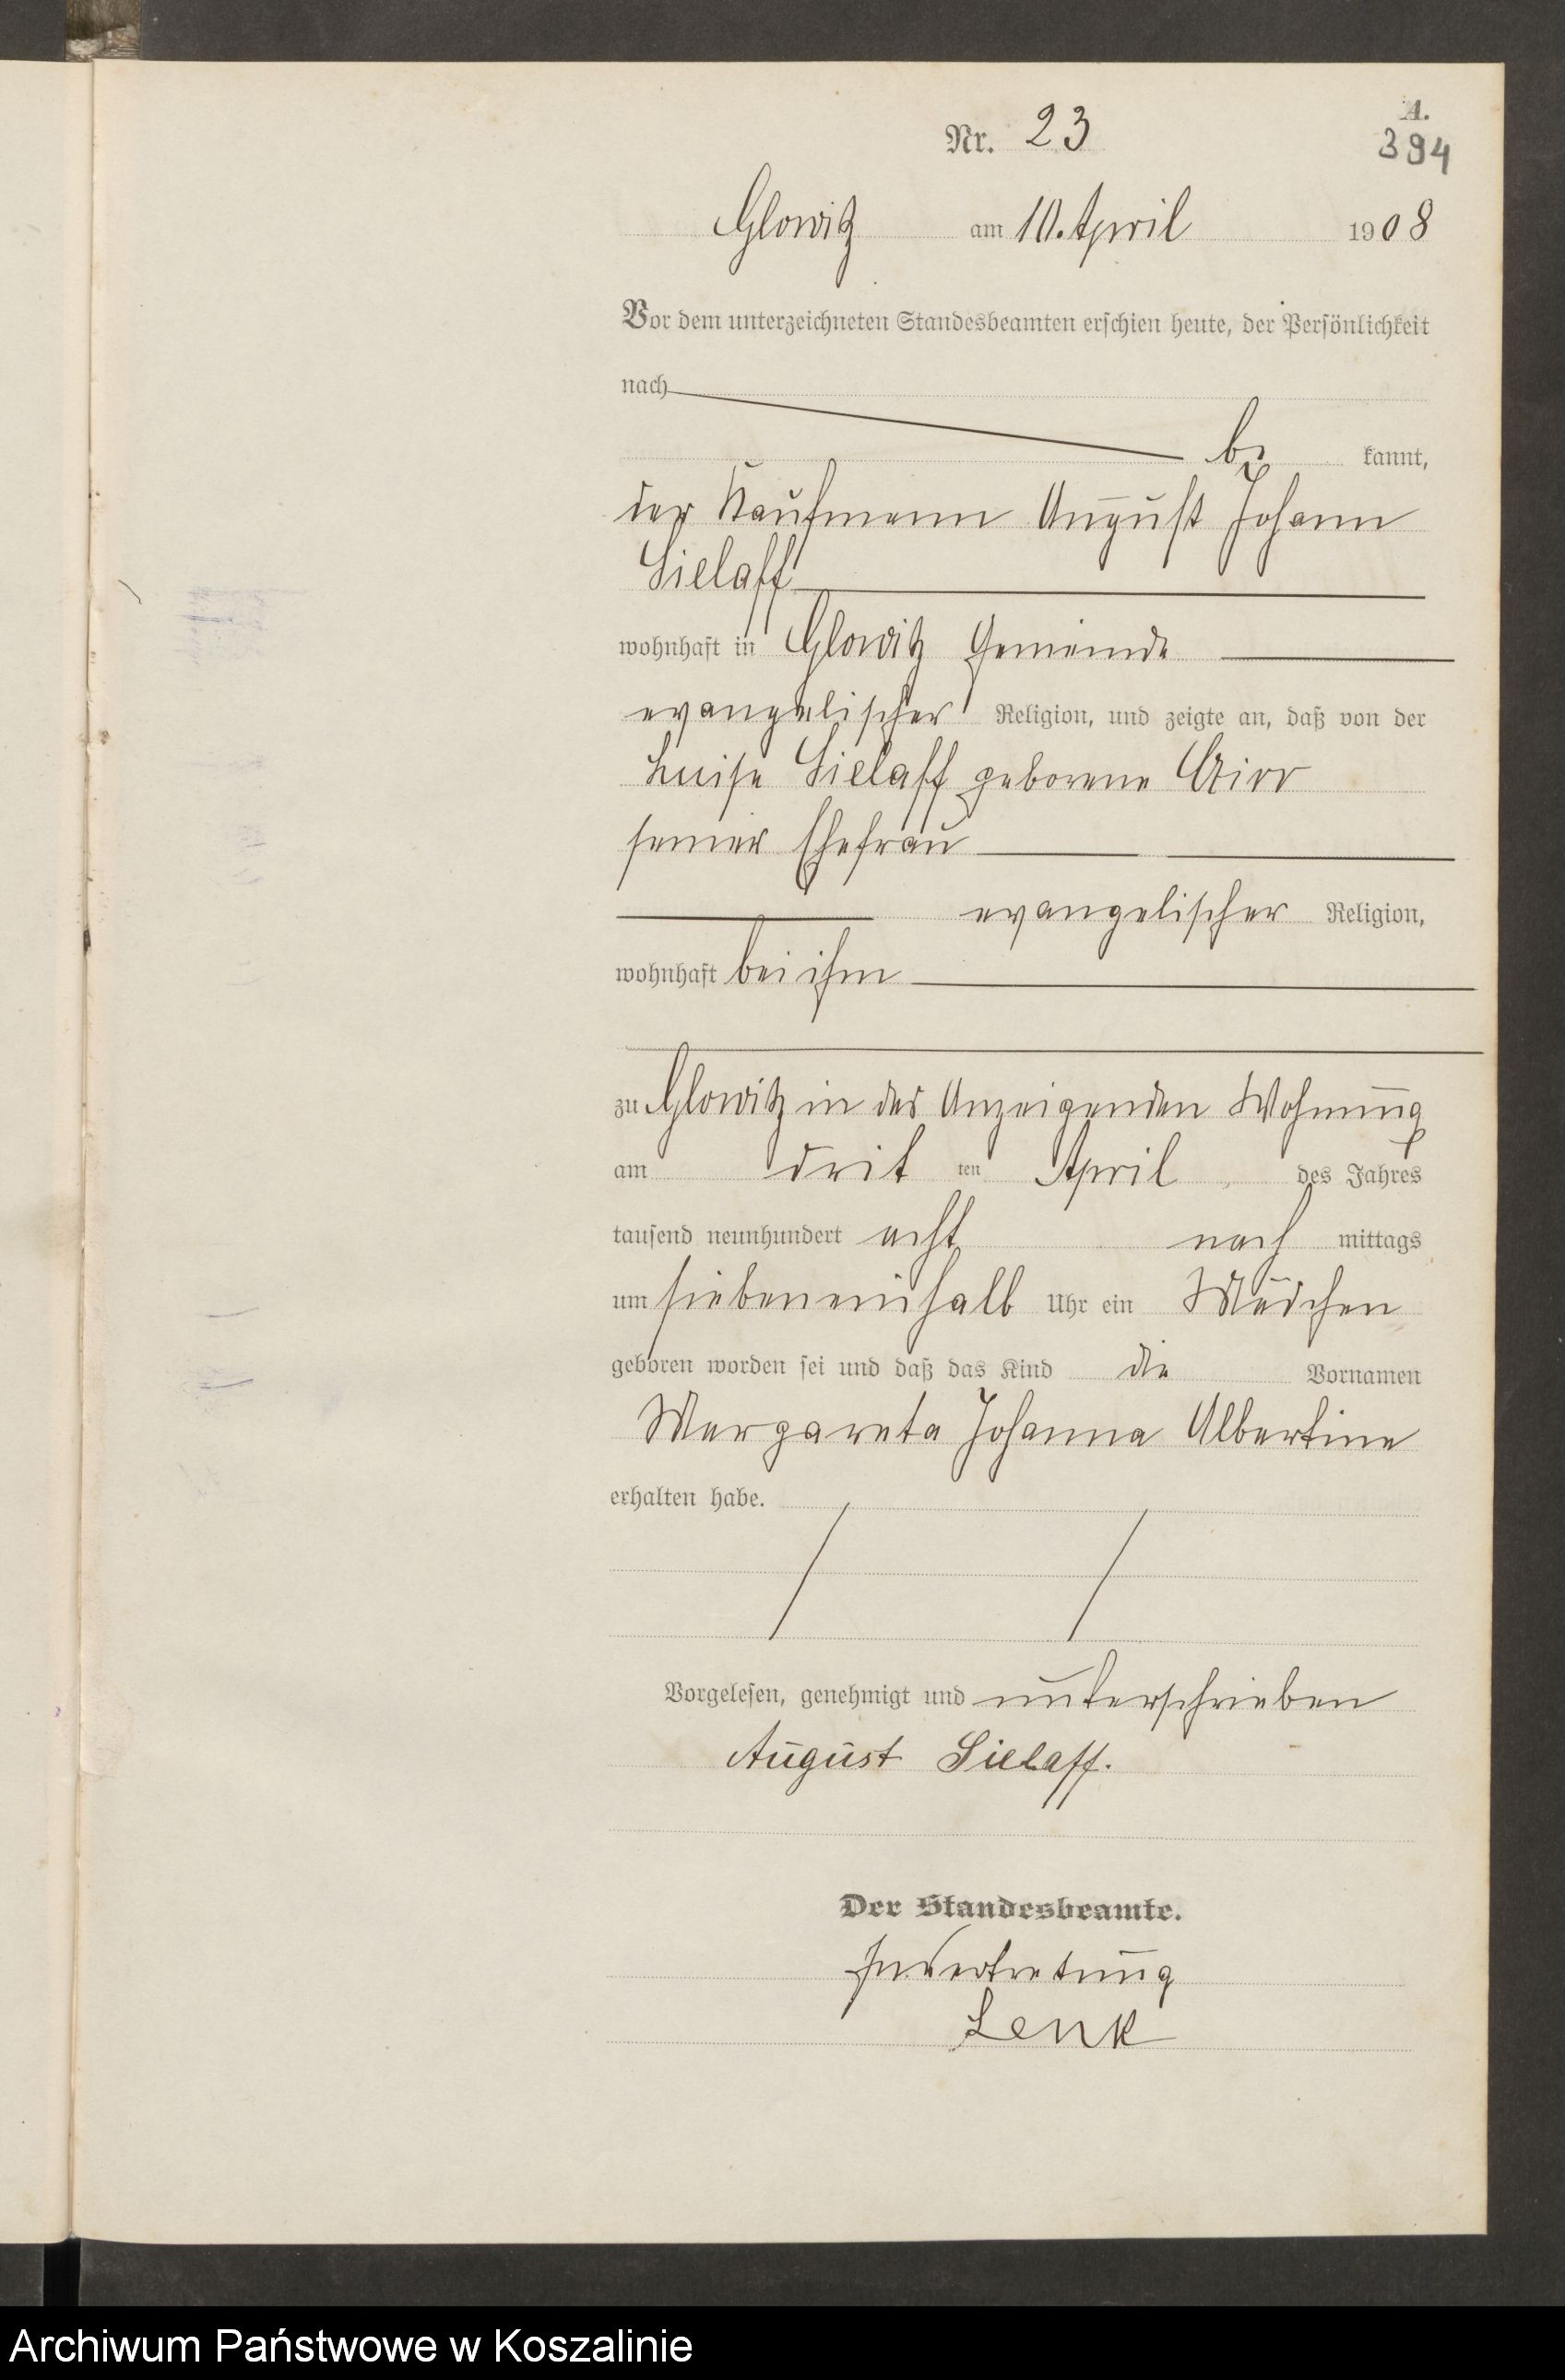 A.
Nr. 23
394
Glowitz am 10. April 1908
Vor dem unterzeichneten Standesbeamten erschien heute, der Persönlichkeit
nach
be kannt,
der Kaufmann August Johann
Sielaff
wohnhaft in Glowitz Gemeinde
evangelischer Religion, und zeigte an, daß von der
Luise Sielaff geborene
seiner Ehefrau
evangelischer Religion,
wohnhaft bei ihm
zu Glowitz in des Anzeigenden Wohnung
am drit ten April des Jahres
tausend neunhundert acht nach mittags
um siebeneinhalb Uhr ein Mädchen
geboren worden sei und daß das Kind die Vornamen
Margareta Johanna Albertine
erhalten habe.
Vorgelesen, genehmigt und unterschrieben
August Sielaff.
Der Standesbeamte.
In Vertretung
Lenk
Archiwum Państwowe w Koszalinie